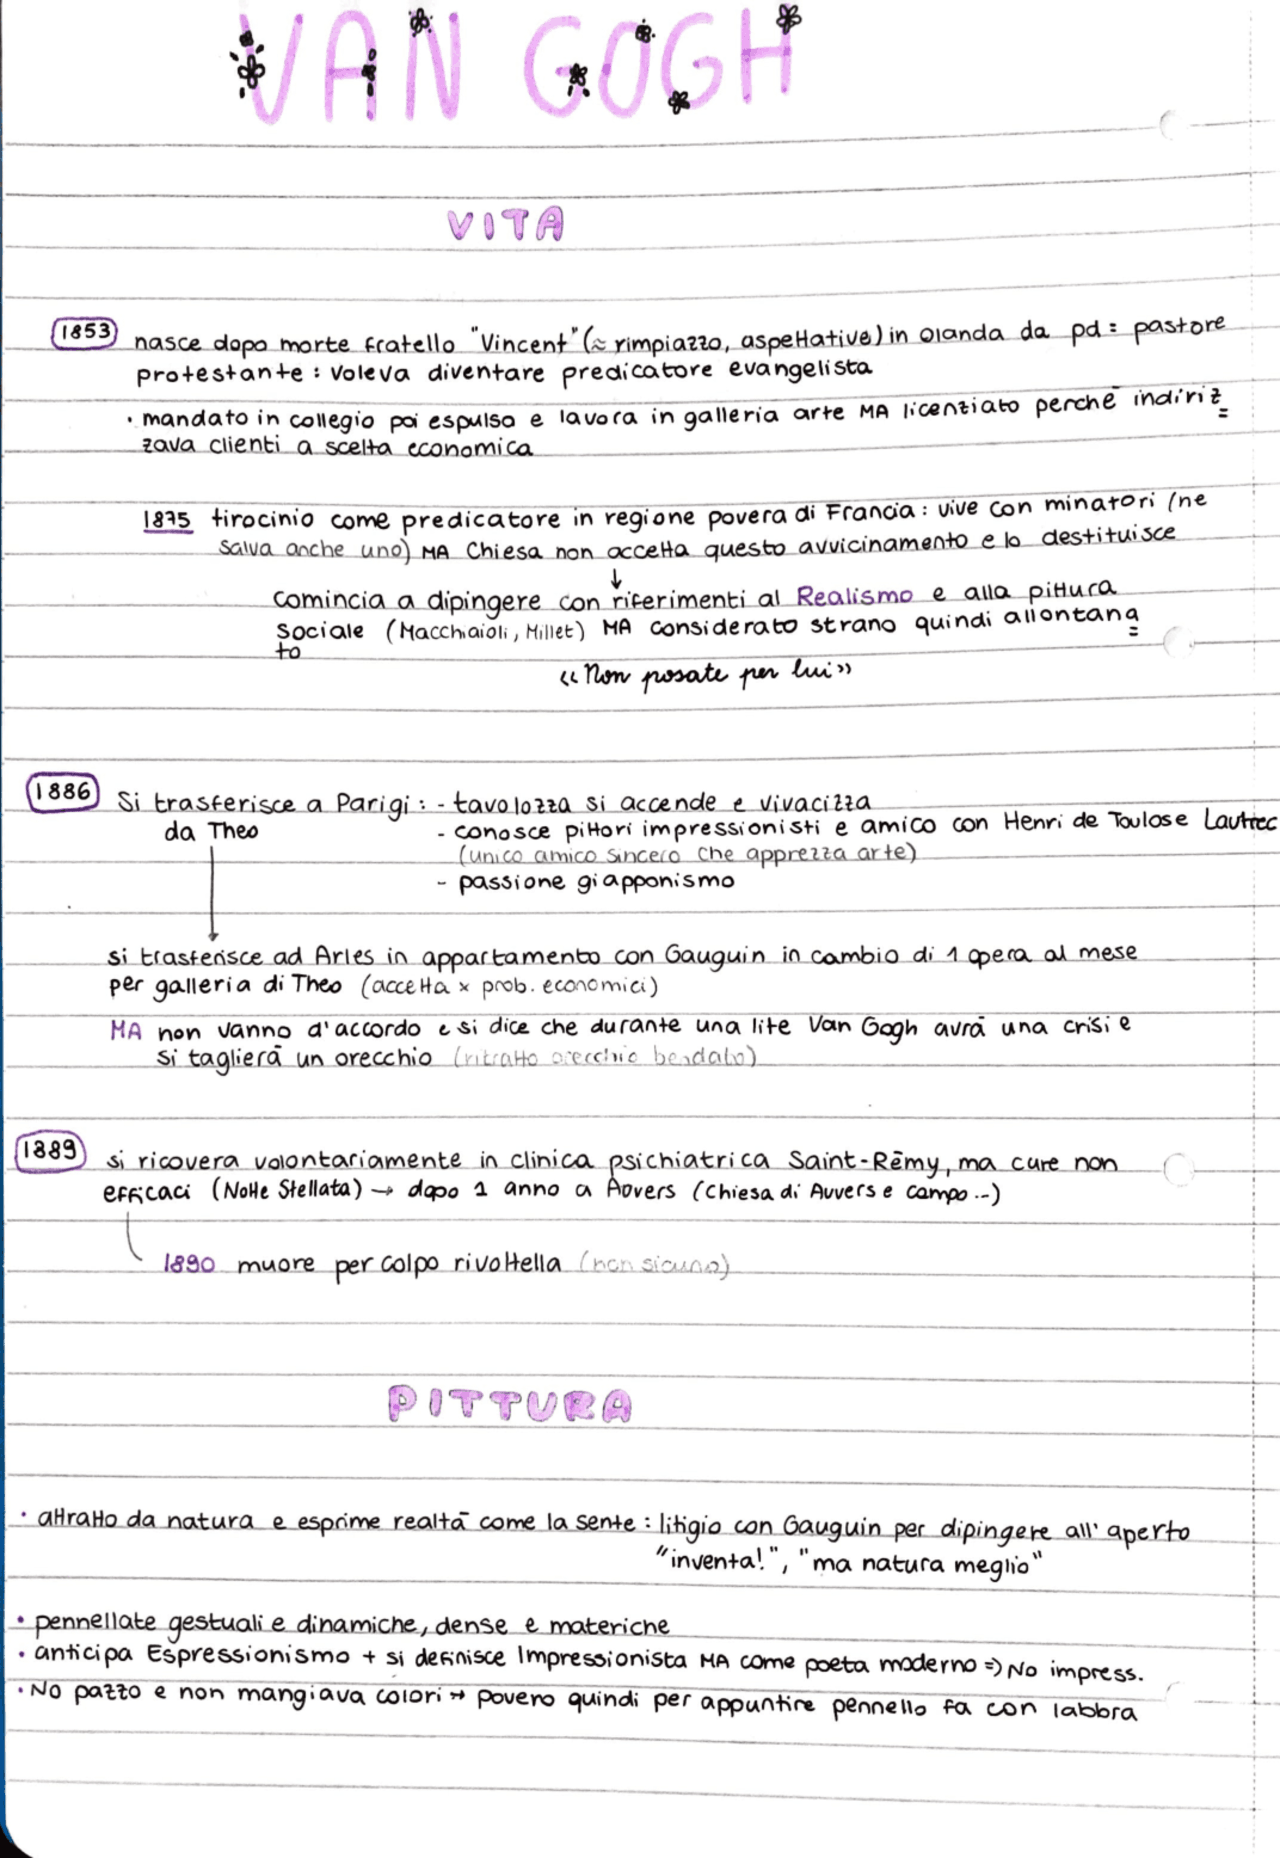 VAN GOGH
VITA
1853 nasce dopo morte fratello "Vincent" (≈ rimpiazzo, aspettative) in Olanda da pd = pastore
protestante : voleva diventare predicatore evangelista
· mandato in collegio poi espulso e lavora in galleria arte MA licenziato perchē indiriz
zava clienti a scelta economica
1875 tirocinio come predicatore in regione povera di Francia : vive con minatori (ne
salva anche uno) MA Chiesa non accetta questo avvicinamento e lo destituisce
↓
comincia a dipingere con riferimenti al Realismo e alla pittura
sociale (Macchiaioli, Millet) MA considerato strano quindi allontana
to
«Non posate per lui»
1886 si trasferisce a Parigi : - tavolozza si accende e vivacizza
da Theo - conosce pittori impressionisti e amico con Henri de Toulose Lautrec
(unico amico sincero che apprezza arte)
- passione giapponismo
si trasferisce ad Arles in appartamento con Gauguin in cambio di 1 opera al mese
per galleria di Theo (accetta x prob. economici)
MA non vanno d'accordo e si dice che durante una lite Van Gogh avrā una crisi e
si taglierā un orecchio (ritratto orecchio bendato)
1889 si ricovera volontariamente in clinica psichiatrica Saint-Rēmy, ma cure non
efficaci (Notte Stellata) → dopo 1 anno a Auvers (Chiesa di Auvers e campo ...)
1890 muore per colpo rivoltella (non sicuro)
PITTURA
· attratto da natura e esprime realtā come la sente : litigio con Gauguin per dipingere all'aperto
"inventa!", "ma natura meglio"
· pennellate gestuali e dinamiche, dense e materiche
· anticipa Espressionismo + si definisce Impressionista MA come poeta moderno => No impress.
· No pazzo e non mangiava colori → povero quindi per appuntire pennello fa con labbra